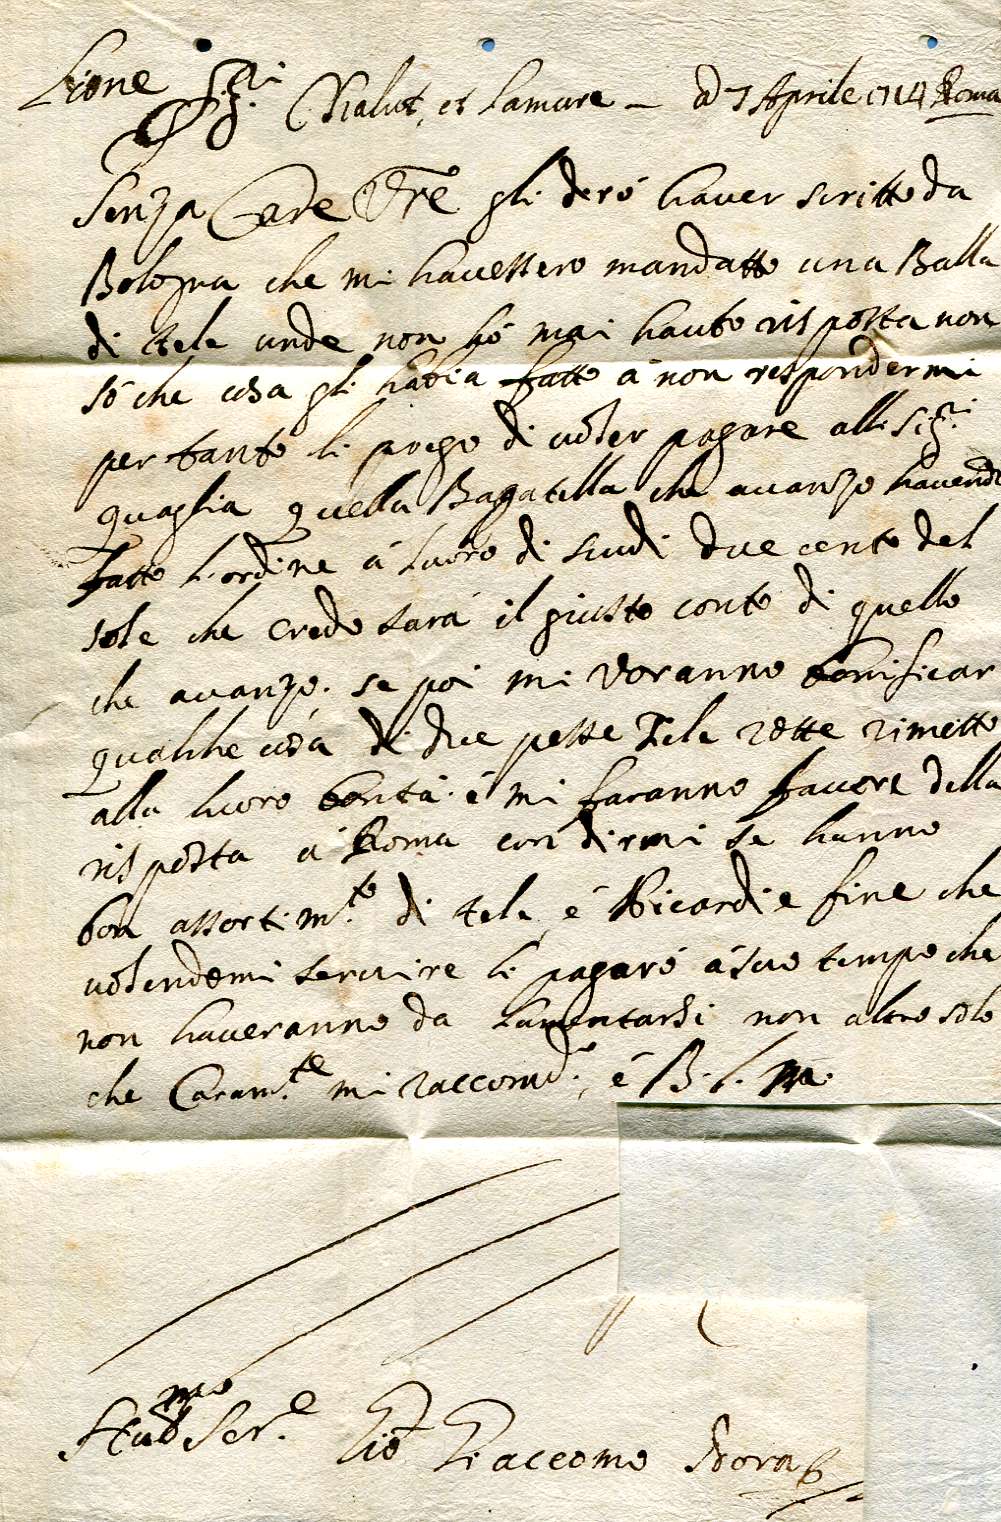 Lione Sig.ri Chalut, et Lamure — ad 7 Aprile 1714 Roma
Senza Care Vre gli derò haver scritto da
Bologna che mi havessero mandatto una Balla
di tele unde non hò mai hauto risposta non
sò che cosa gli habia fatto á non respondermi
per tanto li prego di voler pagare alli Sig.ri
Quaglia quella Bagatella che avanzo havendo
fatto l'ordine á luoro di scudi due cento del
sole che credo sará il giusto conto di quello
che avanzo. se poi mi voranno bonificar
qualche cosa di due pesse Tele rotte rimetto
alla luoro bontá. é mi faranno favore della
risposta á Roma con dirmi se hanno
bon assortim.to di tele, é Ricardie fine che
volendomi servire li pagaró á suo tempo che
non haveranno da lamentarsi non altro solo
che Caram.te mi raccom.do, é B. l. m.
Hub.mo Ser.e Gio Giaccomo Nora